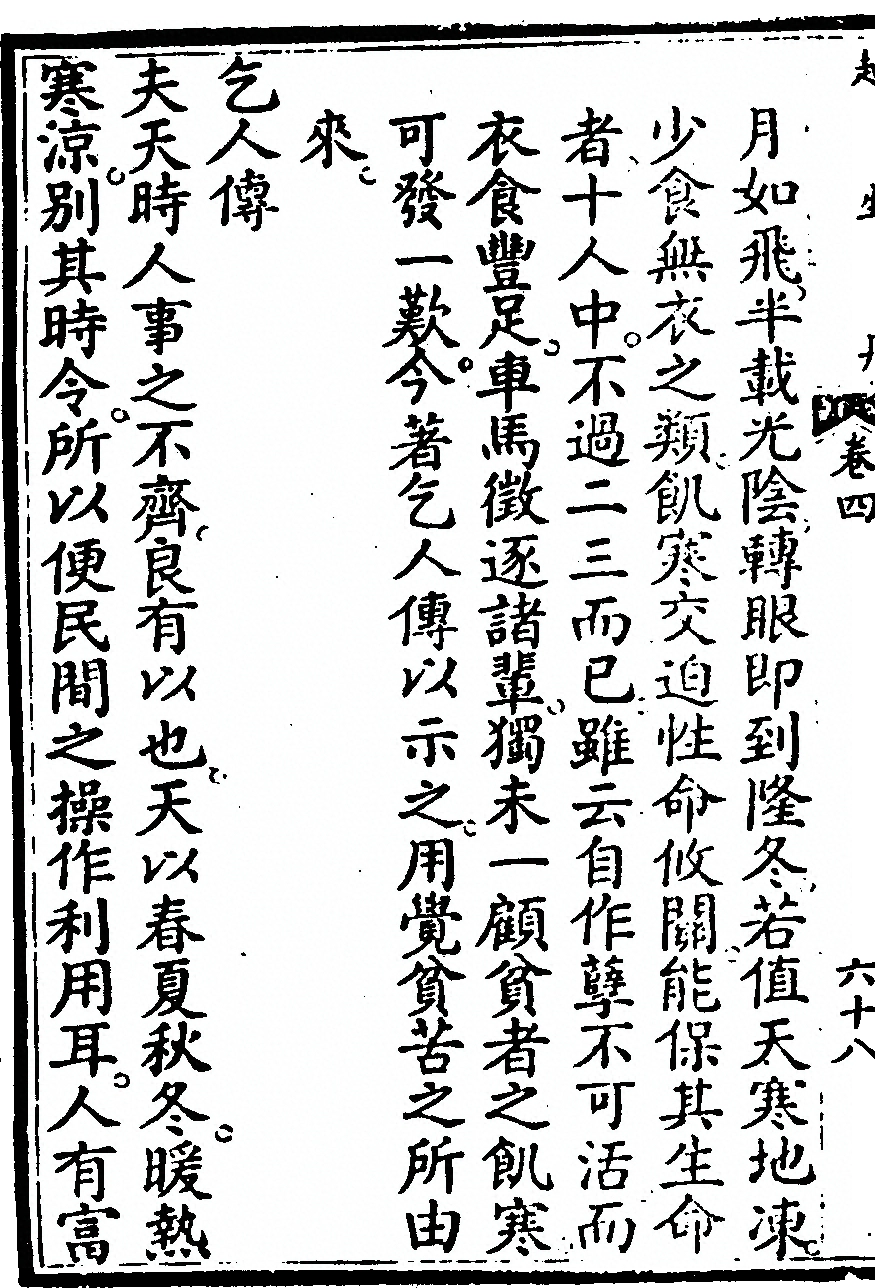 卷四
六十八
月如飛半載光陰轉眼即到隆冬若值天寒地凍。
少食無衣之類飢寒交迫性命攸關能保其生命
者十人中。不過二三而已雖云自作孽不可活而
衣食豐足。車馬徵逐諸輩。獨未一顧貧者之飢寒
可發一歎。今著乞人傳以示之。用覺貧苦之所由
來。
乞人傳
夫天時人事之不齊。良有以也。天以春夏秋冬。暖熱
寒涼。別其時令。所以便民間之操作利用耳。人有富